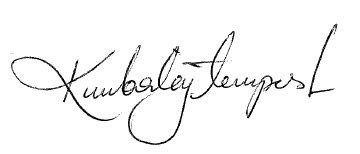 Kimberley Tempest